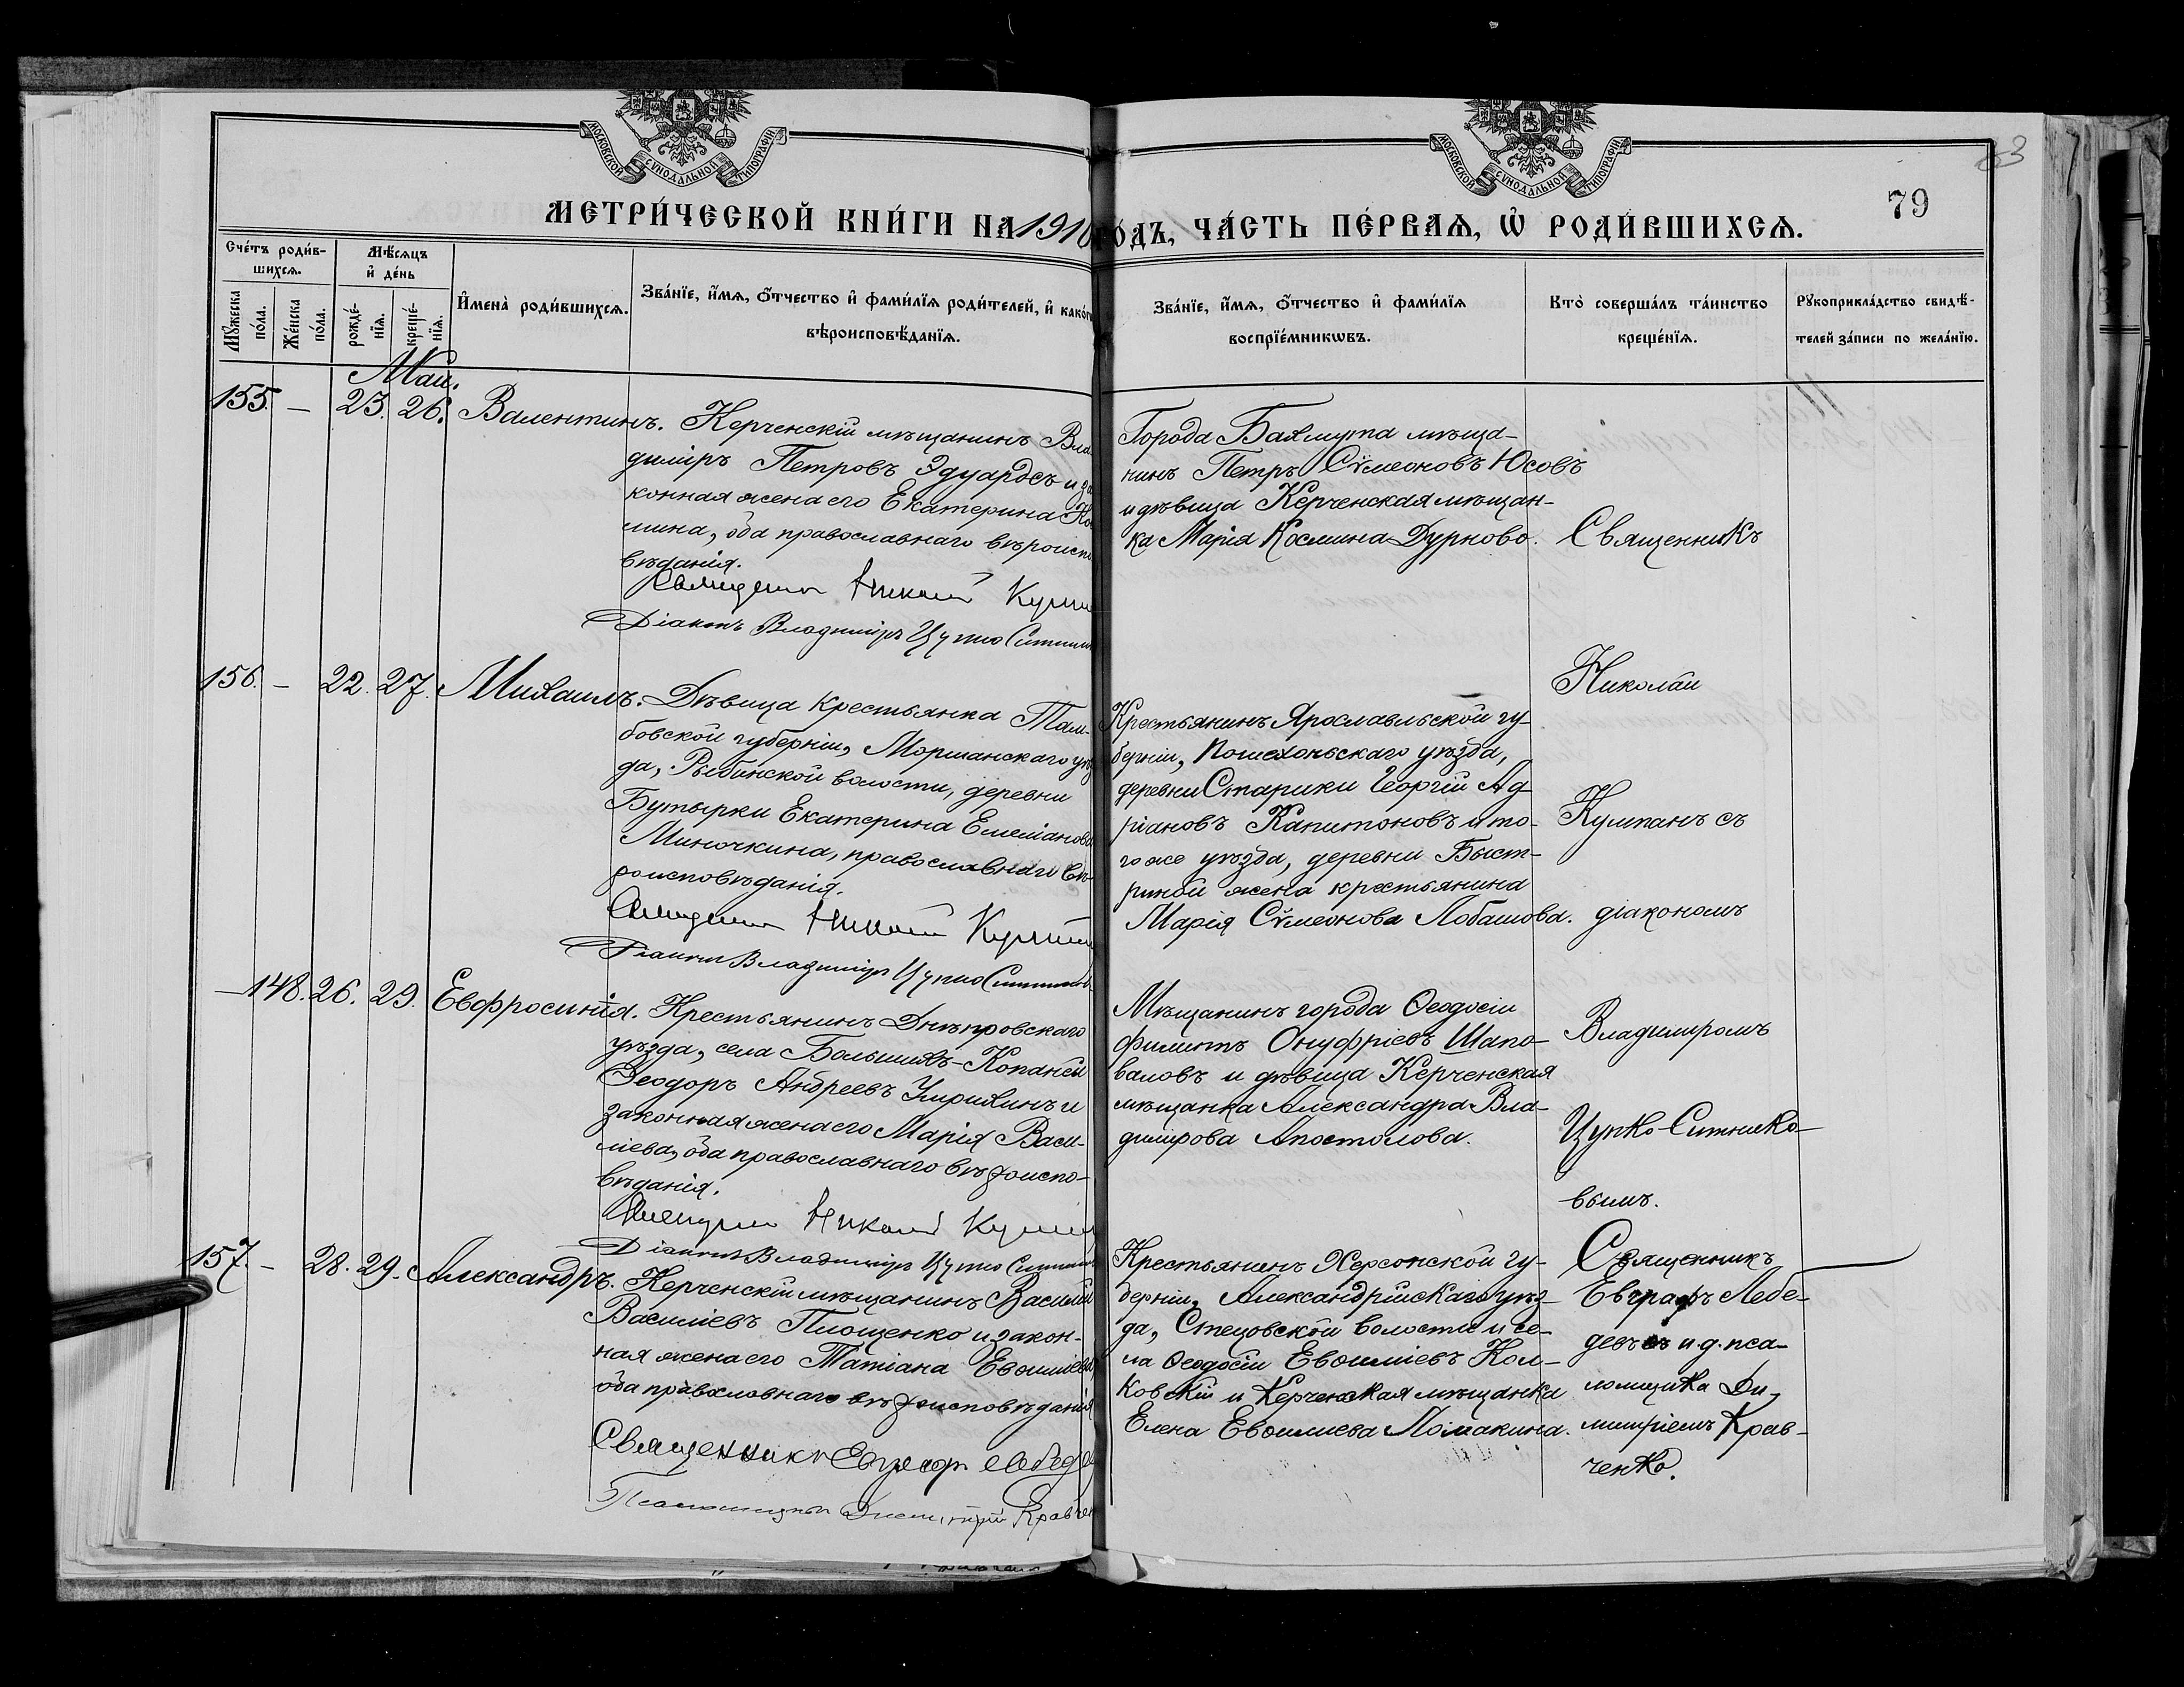 63
79
МОСКОВСКОЙ СѴНОДАЛЬНОЙ ТИПОГРАФІИ
МОСКОВСКОЙ СѴНОДАЛЬНОЙ ТИПОГРАФІИ
МЕТРИ́ЧЕСКОЙ КНИ́ГИ НА 1910 ГО́ДЪ, ЧА́СТЬ ПЕ́РВАѦ, Ѡ҆ РОДИ́ВШИХСѦ.
Сче́тъ роди́в-
шихсѧ.
Мѣ́сѧцъ
и҆ де́нь
Мꙋ́жеска
по́ла.
Же́нска
по́ла.
рожде́-
нїѧ.
креще́-
нїѧ.
И҆мена̀ роди́вшихсѧ.
Зва́нїе, и҆́мѧ, ѻ҆́тчество и҆ фами́лїѧ роди́телей, и҆ како́гѡ
вѣроисповѣ́данїѧ.
Зва́нїе, и҆́мѧ, ѻ҆́тчество и҆ фами́лїѧ
воспрїе́мникѡвъ.
Кто̀ соверша́лъ та́инство
креще́нїѧ.
Рꙋкоприкла́дство свидѣ́-
телей за́писи по жела́нїю.
Май.
155. — 23. 26. Валентинъ.
Керченскій мѣщанинъ Вла-
димiръ Петровъ Эдуардсъ и за-
конная жена его Екатерина Ко
мина, оба православнаго вѣроиспо
вѣданія.
Священникъ Николай
Діаконъ Владиміръ Цупко Ситник
Города Бахмута мѣща-
нинъ Петръ Сѵмеоновъ Юсовъ
и дѣвица Керченская мѣщан-
ка Марія Космина Дурново.
Священникъ
156. — 22. 27. Михаилъ.
Дѣвица крестьянка Там-
бовской губерніи, Моршанскаго уѣз
да, Рыбинской волости, деревни
Бутырки Екатерина Емеліанова
Миночкина, православнаго вѣ-
роисповѣданія.
Священникъ Николай
Діаконъ Владиміръ Цупко Ситников
Крестьянинъ Ярославльской гу-
берніи, Пошехоньскаго уѣзда,
деревни Старики Георгій Ад-
ріановъ Капитоновъ и то-
го же уѣзда, деревни Быст-
риной жена крестьянина
Марія Сѵмеонова Лобашова.
Николай
Кумпанъ съ
діакономъ
— 148. 26. 29. Евфросинія.
Крестьянинъ Днѣпровскаго
уѣзда, села Большихъ-Копаней
Ѳеодоръ Андреевъ Умрихинъ и
законная жена его Марія Васи-
ліева, оба православнаго вѣроиспо-
вѣданія.
Священникъ Николай
Діаконъ Владиміръ Цупко Ситник
Мѣщанинъ города Ѳеодосіи
Филиппъ Онуфріевъ Шапо-
валовъ и дѣвица Керченская
мѣщанка Александра Вла-
димірова Апостолова.
Владимиромъ
Цупко-Ситнико-
вымъ.
157. — 28. 29. Александръ.
Керченскій мѣщанинъ Василій
Василіевъ Площенко и закон-
ная жена его Татіана Евѳиміева
оба православнаго вѣроисповѣданія
Священникъ Евграфъ Лебеде
Псаломщикъ Димитрій Кравчен
Крестьянинъ Херсонской гу-
берніи, Александрійскаго уѣз-
да, Стецовской волости и се-
ла Ѳеодосій Евѳиміевъ Кол-
ковскій и Керченская мѣщанка
Елена Евѳиміева Ломакина.
Священникъ
Евграфъ Лебе-
девъ съ и. д. пса-
ломщика Ди-
митріемъ Крав-
ченко.